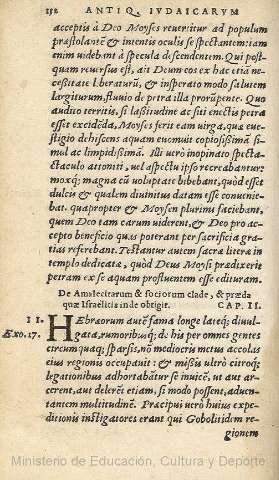 152 ANTIQ. IVDAICARVM
acceptis à Deo Moyses reuertitur ad populum
præstolantẽ & intentis oculis se spectantem: iam
enim uidebant à specula descendentem. Qui post-
quam reuersus est, ait Deum eos ex hac etiam ne-
cessitate liberaturũ, & insperato modo salutem
largiturum, fluuio de petra illa prorũpente. Quo
audito territis, si lassitudine ac siti enectis petra
esset excidẽda, Moyses ferit eam uirga, quæ eue-
stigio dehiscens aquam euomuit copiosissimã si-
mul ac limpidissimã. Illi uerò inopinato specta-
ctaculo attoniti, uel aspectu ipso recreabantur:
moxq́; magna cũ uoluptate bibebant, quòd esset
dulcis & qualem diuinitus datam esse conuenie-
bat. quapropter & Moysen plurimi faciebant,
quem Deo tam carum uiderent, & Deo pro ac-
cepto beneficio quas poterant per sacrificia gra-
tias referebant. Testantur autem sacræ literæ in
templo dedicatæ, quòd Deus Moysi prædixerit
petram ex se aquam profusuentem esse edituram.
De Amalecitarum & sociorum clade, & præda
quæ Israëlitis inde obtigit. CAP. II.
II. HEbræorum autẽ fama longe lateq́; diuul-
Exo. 17. gata, rumoribusq́; de his per omnes gentes
circumquaq́; sparsis, nõ mediocris metus accolas
eius regionis occupauit: & missis ultro citroq́;
legationibus adhortabãtur se inuicẽ, ut aut arc-
erent, aut delerẽt etiam, si modo possent, aduen-
tantem multitudinẽ. Præcipui uero huius expe-
ditionis instigatores erant qui Gobolitidem re-
gionem
Ministerio de Educación, Cultura y Deporte